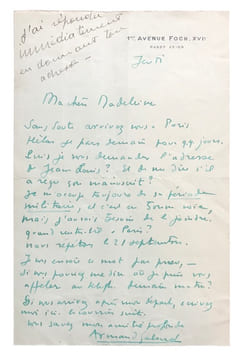 J'ai répondu
immédiatement
en donnant ton
adresse —
1er AVENUE FOCH. XVIe
PASSY
Jeudi
Ma chère Madeleine
Sans doute arrivez vous à Paris
Hélas je pars demain pour jours.
Puis je vous demander l'adresse
de Jean Louis ? Et de me dire s'il
a reçu son manuscrit ?
Je m'occupe toujours de sa
militaire, et c'est en bonne voie,
mais j'aurais besoin de le joindre.
quand rentre-t-il à Paris ?
nous répétons le 21 septembre.
Je vous envoie ce mot par pneu, —
si vous pouvez me dire où je puis vous
appeler au téléph. demain matin ?
Si vous arrivez après mon départ, écrivez
moi ici. suite.
vous savez mon amitié profonde
Armand Salacrou